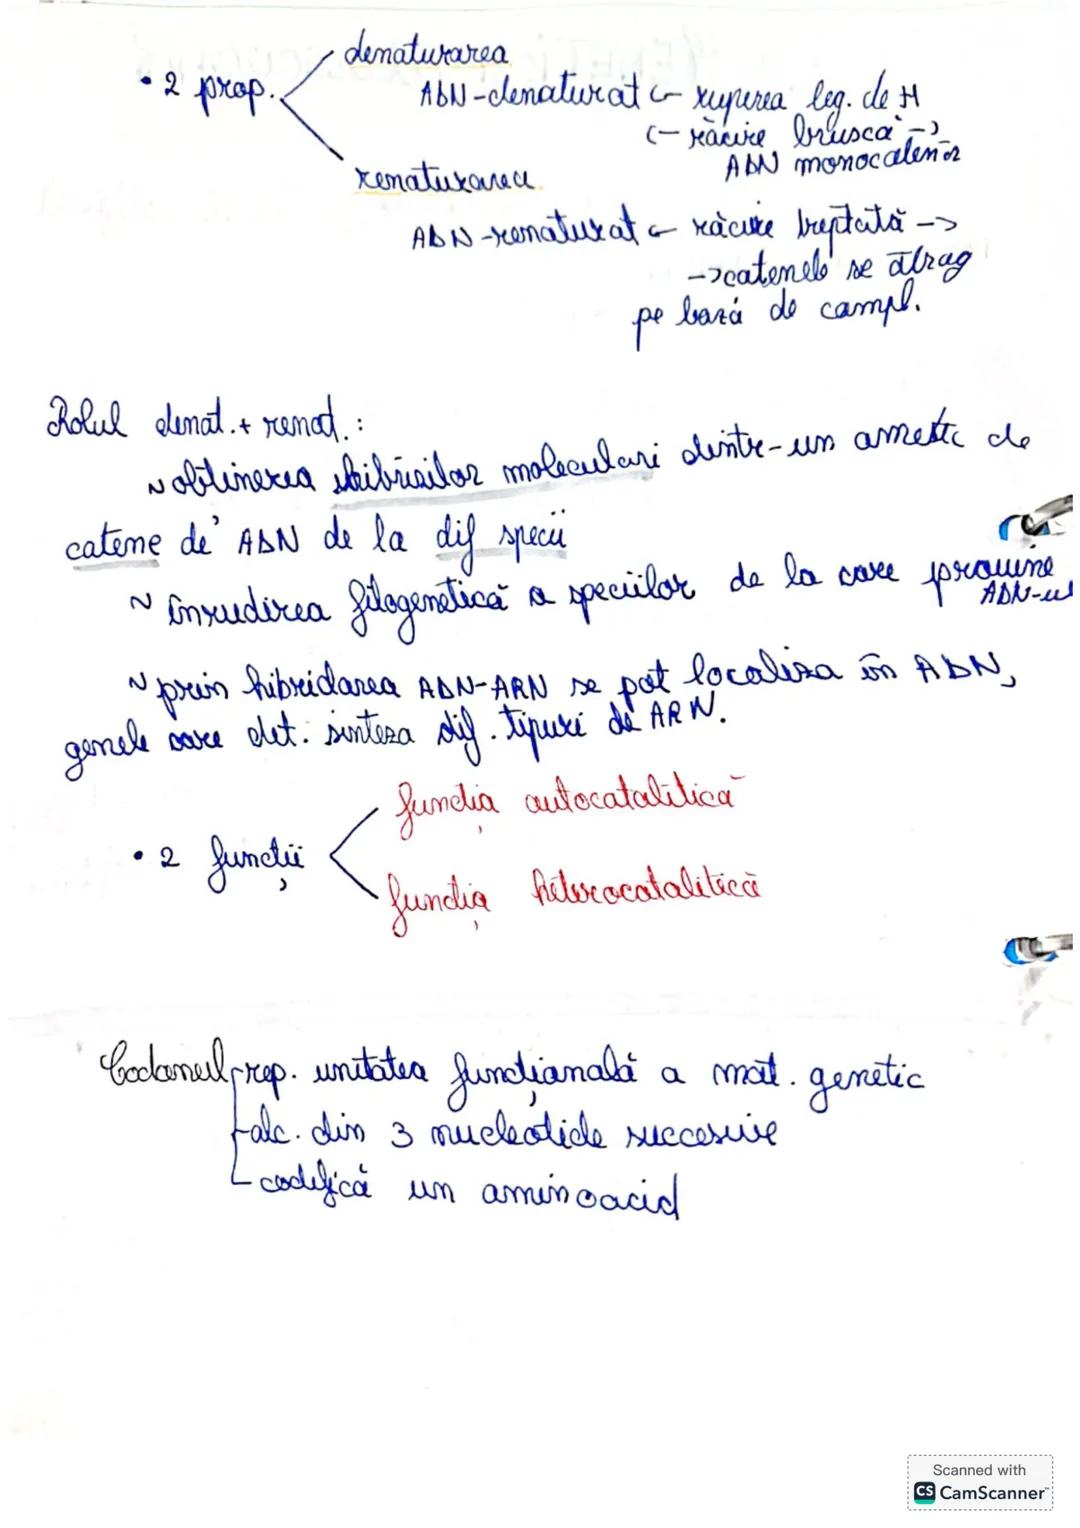 denaturarea
• 2 prop.
ADN-denaturat ← ruperea leg. de H
← răcire bruscă →
ADN monocatenar
renaturarea
ADN-renaturat ← răcire treptată →
→ catenele se atrag
pe bază de compl.
Rolul denat. + renat. :
~ obtinerea hibrizilor moleculari dintr-un amestec de
catene de ADN de la dif specii
~ înrudirea filogenetică a speciilor de la care provine
ADN-ul
~ prin hibridarea ADN-ARN se pot localiza în ADN,
genele care det. sinteza dif. tipuri de ARN.
funcția autocatalitică
• 2 funcții
funcția heterocatalitică
Codonul - rep. unitatea funcțională a mat. genetic
- alc. din 3 nucleotide succesive
- codifică un aminoacid
Scanned with
CS CamScanner